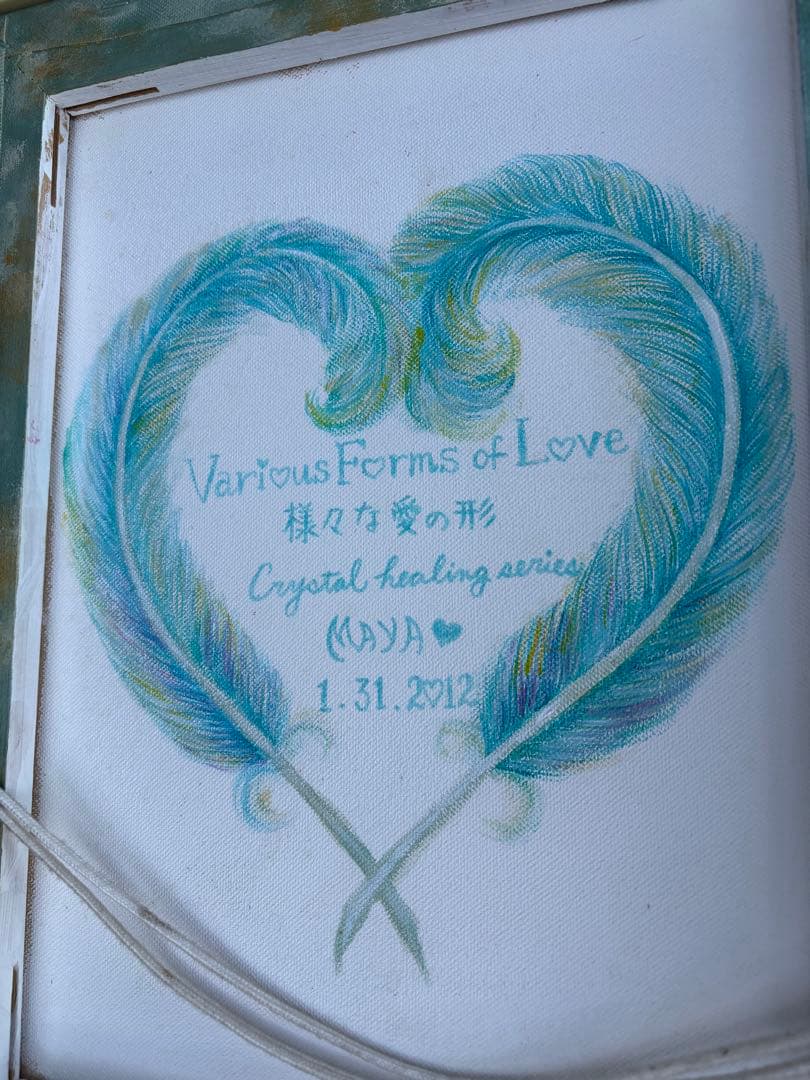 Various Forms of Love
様々な愛の形
Crystal healing series
MAYA♥
1.31.2012